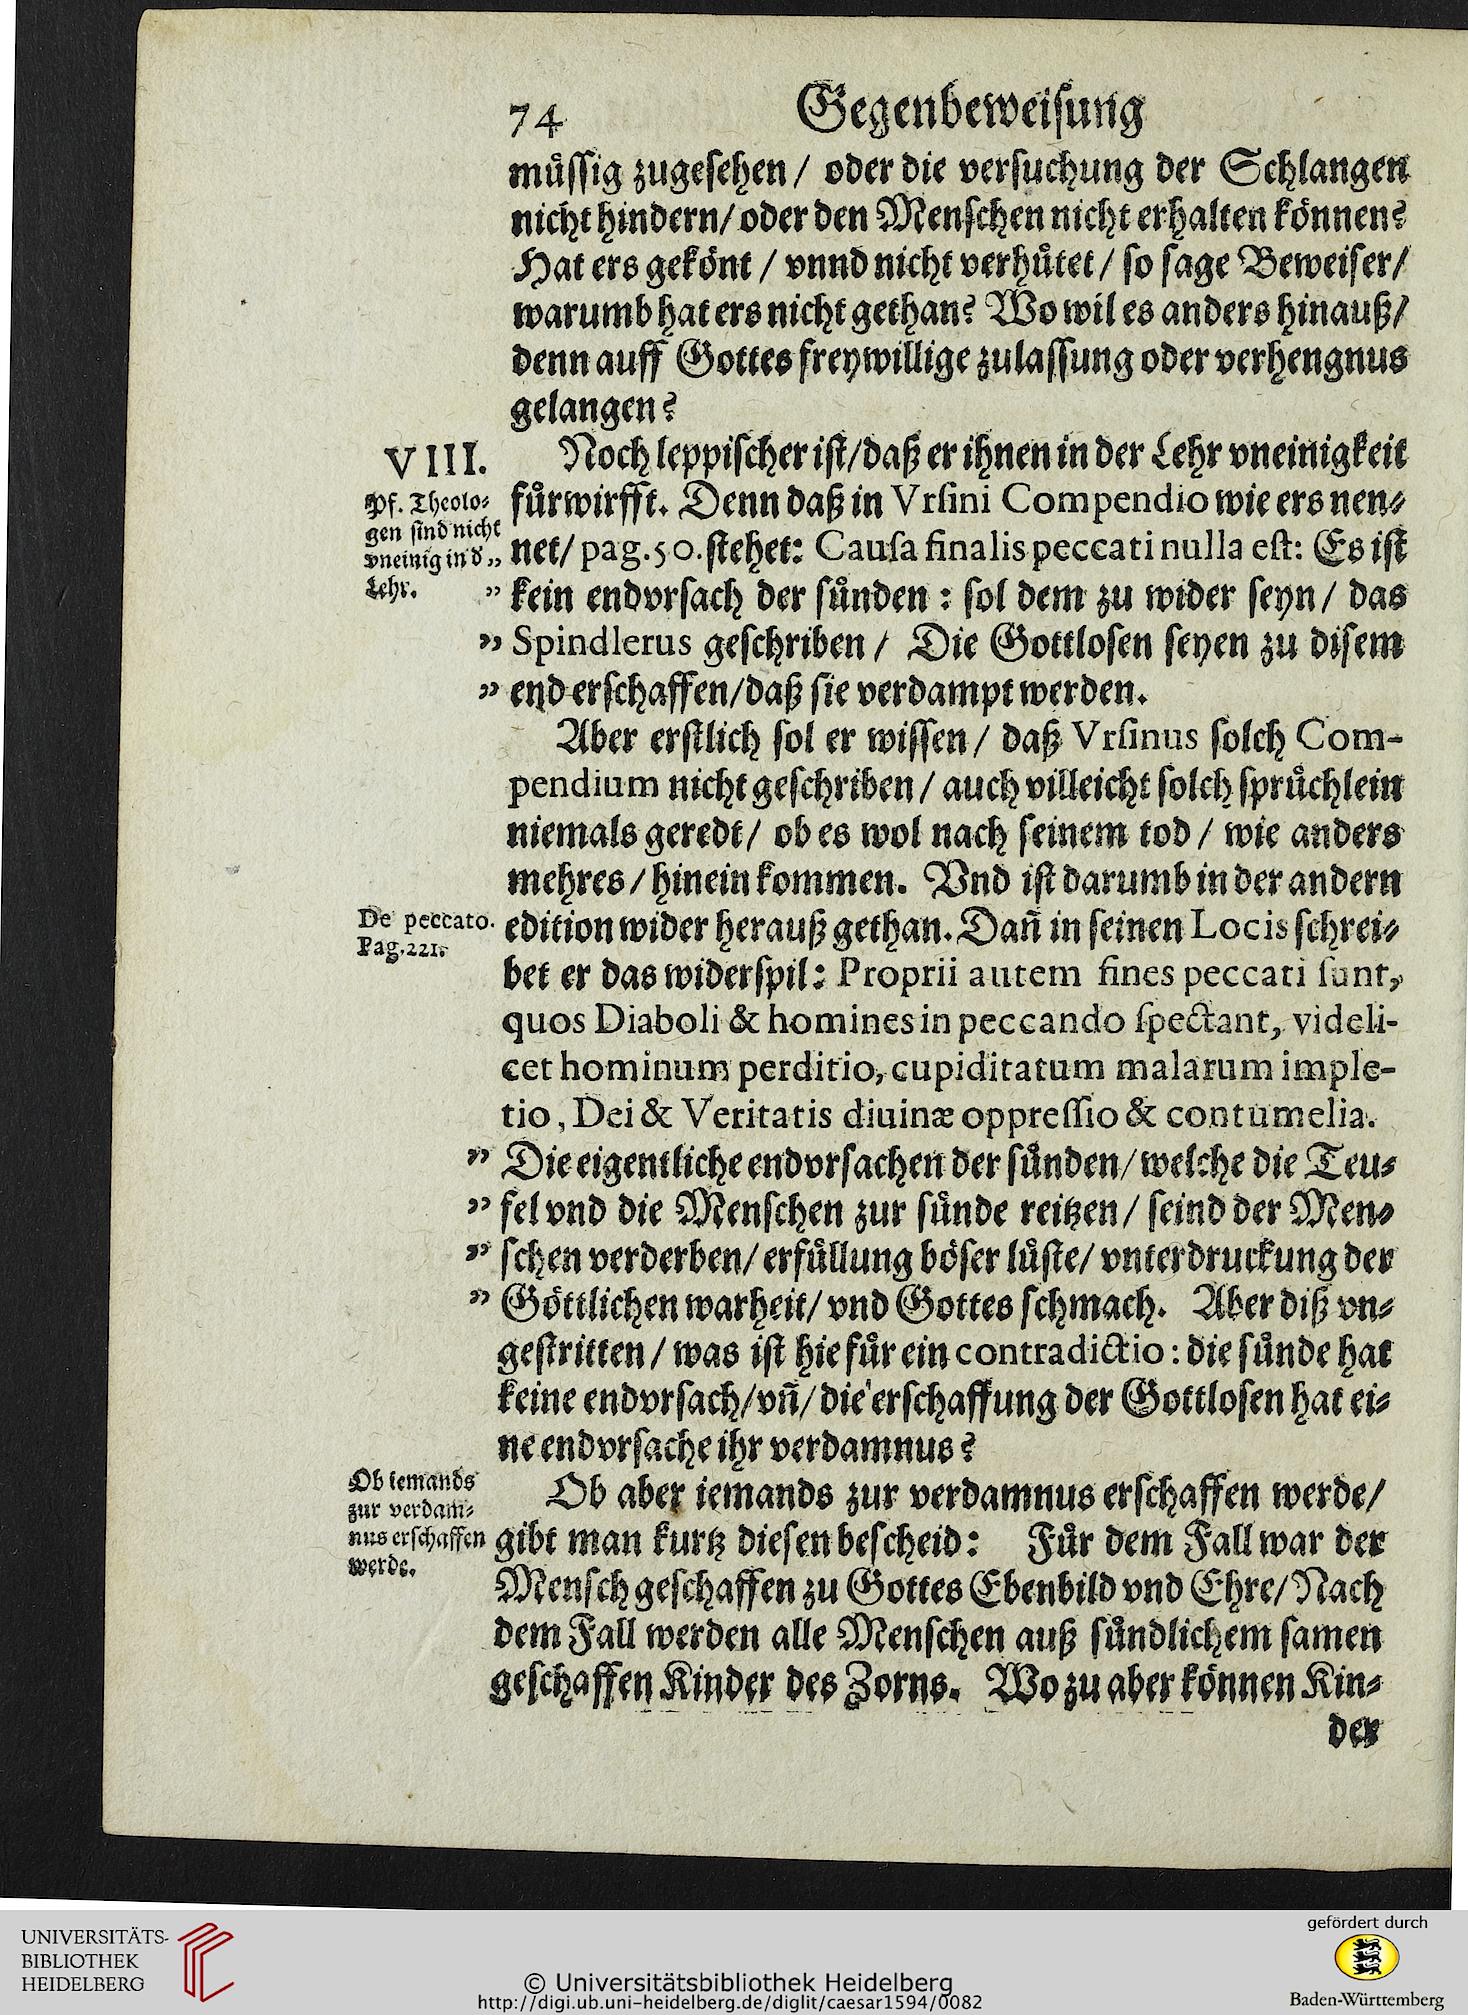 74 Gegenbeweisung
müssig zugesehen / oder die versuchung der Schlangen
nicht hindern/ oder den Menschen nicht erhalten können?
Hat ers gekönt / vnnd nicht verhütet / so sage Beweiser/
warumb hat ers nicht gethan? Wo wil es anders hinauß/
denn auff Gottes freywillige zulassung oder verhengnus
gelangen?
VIII.
Noch leppischer ist/daß er ihnen in der Lehr vneinigkeit
Pf. Theolo-
gen sind nicht
vneinig in d
Lehr.
fürwirfft. Denn daß in Vrsini Compendio wie ers nen-
„ net/ pag.50. stehet: Causa finalis peccati nulla est: Es ist
„ kein endvrsach der sünden : sol dem zu wider seyn / das
„ Spindlerus geschriben / Die Gottlosen seyen zu disem
„ end erschaffen/daß sie verdampt werden.
Aber erstlich sol er wissen / daß Vrsinus solch Com-
pendium nicht geschriben / auch villeicht solch sprüchlein
niemals geredt / ob es wol nach seinem tod / wie anders
mehres / hinein kommen. Vnd ist darumb in der andern
De peccato.
Pag.221.
edition wider herauß gethan. Dañ in seinen Locis schrei-
bet er das widerspil: Proprii autem fines peccati sunt,
quos Diaboli & homines in peccando spectant, videli-
cet hominum perditio, cupiditatum malarum imple-
tio, Dei & Veritatis diuinæ oppressio & contumelia.
„ Die eigentliche endvrsachen der sünden/ welche die Teu-
„ fel vnd die Menschen zur sünde reitzen / seind der Men-
„ schen verderben/ erfüllung böser lüste/ vnterdruckung der
„ Göttlichen warheit/ vnd Gottes schmach. Aber diß vn-
gestritten / was ist hie für ein contradictio : die sünde hat
keine endvrsach/vñ/ die erschaffung der Gottlosen hat ei-
ne endvrsache ihr verdamnus?
Ob iemands
zur verdam-
nus erschaffen
werde.
Ob aber iemands zur verdamnus erschaffen werde/
gibt man kurtz diesen bescheid: Für dem Fall war der
Mensch geschaffen zu Gottes Ebenbild vnd Ehre/ Nach
dem Fall werden alle Menschen auß sündlichem samen
geschaffen Kinder des Zorns. Wo zu aber können Kin-
der
UNIVERSITÄTS-
BIBLIOTHEK
HEIDELBERG
© Universitätsbibliothek Heidelberg
http://digi.ub.uni-heidelberg.de/diglit/caesar1594/0082
gefördert durch
Baden-Württemberg